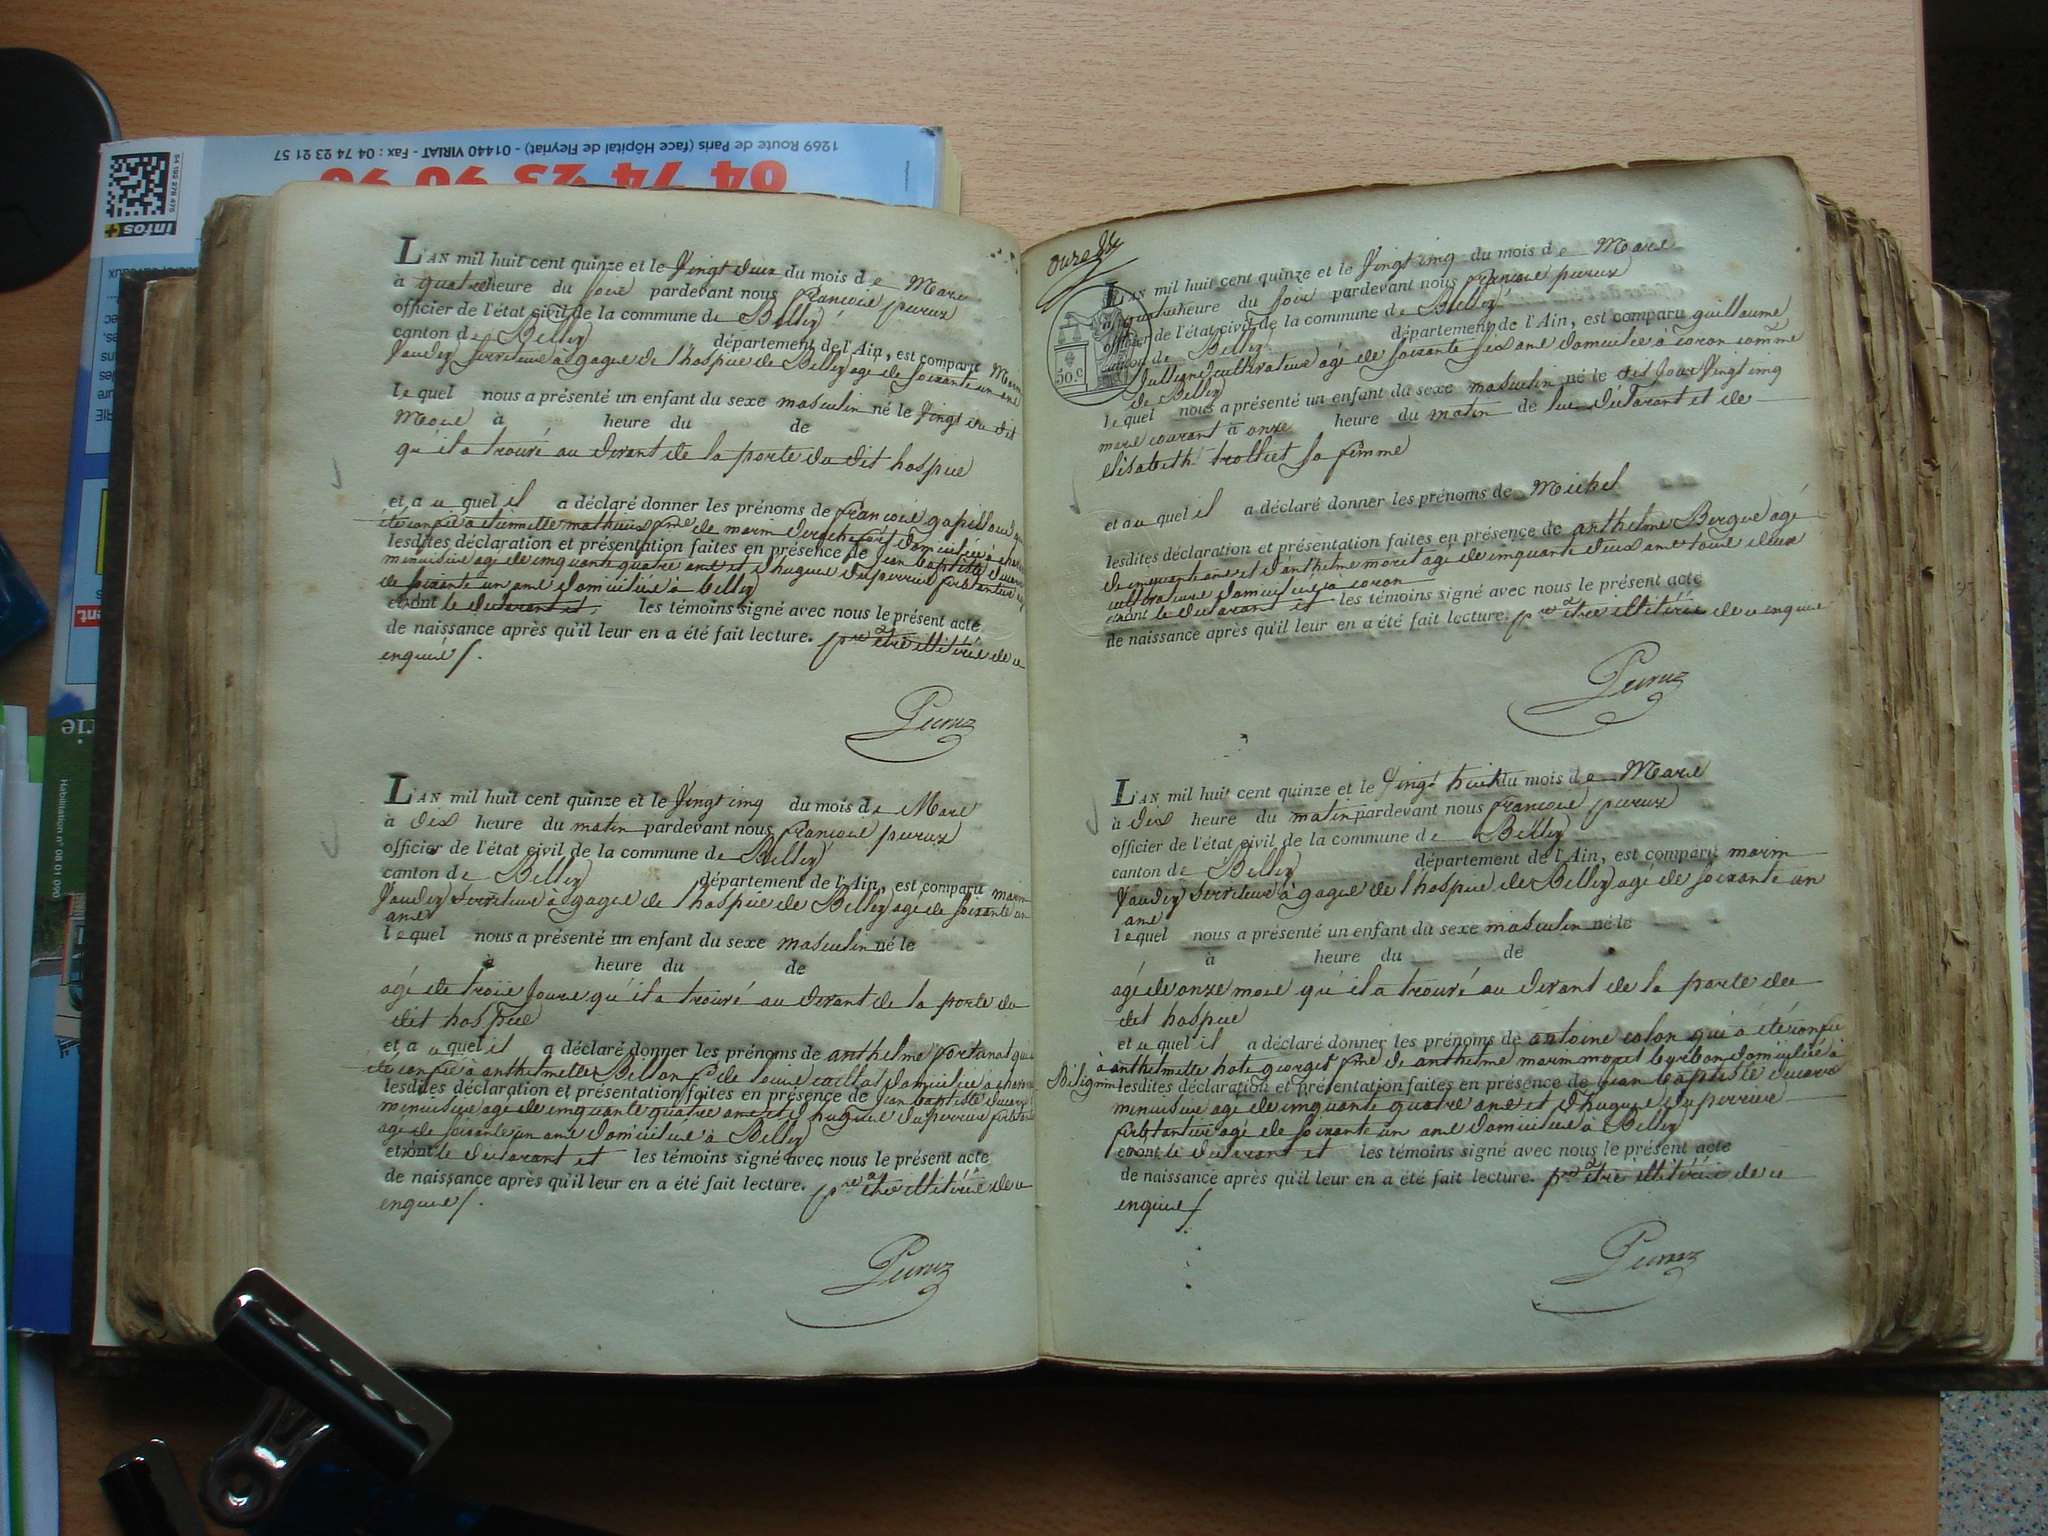 1269 Route de Paris (face Hôpital de Fleyriat) - 01440 VIRIAT - Fax : 04 74 23 21 57
04 74 23 90 90
infos+
L'AN mil huit cent quinze et le Vingt deux du mois de Mars
à quatre heure du soir pardevant nous françois peruz
officier de l'état civil de la commune de Belley
canton de Belley département de l'Ain, est comparu Marin
Vaudey serviteur à gages de l'hospice de Belley agé de soixante un ans
lequel nous a présenté un enfant du sexe masculin né le Vingt du dit
Mars à heure du de
qu'il a trouvé au devant de la porte du dit hospice
et auquel il a déclaré donner les prénoms de françois
été confié à mathieu fme de marin domiciliée à
lesdites déclaration et présentation faites en présence de Jean baptiste
menuisier agé de cinquante quatre ans et d'hugues duperrier
de soixante un ans domiciliés à belley
et ont le déclarant et les témoins signé avec nous le présent acte
de naissance après qu'il leur en a été fait lecture. pour être illitérés de ce
enquis /.
Peruz
L'AN mil huit cent quinze et le Vingt cinq du mois de Mars
à dix heure du matin pardevant nous françois peruz
officier de l'état civil de la commune de Belley
canton de Belley département de l'Ain, est comparu marin
Vaudey serviteur à gages de l'hospice de Belley agé de soixante un
ans
lequel nous a présenté un enfant du sexe masculin né le
à heure du de
agé de trois jours qu'il a trouvé au devant de la porte du
dit hospice
et auquel il a déclaré donner les prénoms de anthelme fortunat qui a
été confié à anthelmette Billon fe de louis domiciliée à
lesdites déclaration et présentation faites en présence de Jean baptiste
menuisier agé de cinquante quatre ans et d'hugues duperrier
agé de soixante un ans domiciliés à Belley
et ont le déclarant et les témoins signé avec nous le présent acte
de naissance après qu'il leur en a été fait lecture. pour être illitérés de ce
enquis /.
Peruz
50.c
L'AN mil huit cent quinze et le Vingt cinq du mois de Mars
à quatre heure du soir pardevant nous françois peruz
officier de l'état civil de la commune de Belley
canton de Belley département de l'Ain, est comparu guillaume
cultivateur agé de soixante six ans domicilié à coron comme
de Belley
lequel nous a présenté un enfant du sexe masculin né le dit jour Vingt cinq
mars courant à onze heure du matin de lui déclarant et de
elisabeth trolliet sa femme
et auquel il a déclaré donner les prénoms de Michel
lesdites déclaration et présentation faites en présence de anthelme Bergue agé
de cinquante ans et d'anthelme moret agé de cinquante deux ans tous deux
cultivateurs domiciliés à coron
et ont le déclarant et les témoins signé avec nous le présent acte
de naissance après qu'il leur en a été fait lecture. pour être illitérés de ce enquis
Peruz
L'AN mil huit cent quinze et le Vingt huit du mois de Mars
à dix heure du matin pardevant nous françois peruz
officier de l'état civil de la commune de Belley
canton de Belley département de l'Ain, est comparu marin
Vaudey serviteur à gages de l'hospice de Belley agé de soixante un
ans
lequel nous a présenté un enfant du sexe masculin né le
à heure du de
agé de onze mois qu'il a trouvé au devant de la porte du
dit hospice
et auquel il a déclaré donner les prénoms de antoine colon qui a été confié
à anthelmette georges fme de anthelme marin moret domiciliée à
Bilignin lesdites déclaration et présentation faites en présence de Jean baptiste
menuisier agé de cinquante quatre ans et d'hugues duperrier
agé de soixante un ans domiciliés à Belley
et ont le déclarant et les témoins signé avec nous le présent acte
de naissance après qu'il leur en a été fait lecture. pour être illitérés de ce
enquis /
Peruz